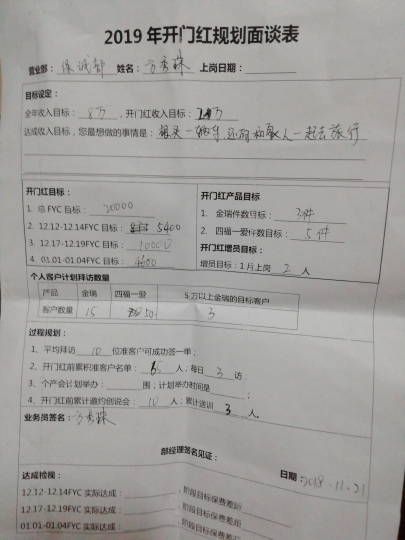 2019年开门红规划面谈表
营业部：保诚部 姓名：方秀珠 上岗日期：
目标设定：
全年收入目标：8万，开门红收入目标：2万
达成收入目标，您最想做的事情是：想买一辆车，还有和家人一起去旅行
开门红目标：
1. 总FYC目标：20000
2. 12.12-12.14FYC目标：5400
3. 12.17-12.19FYC目标：10000
4. 01.01-01.04FYC目标：4600
开门红产品目标
1. 金瑞件数目标：3件
2. 四福一爱件数目标：5件
开门红增员目标：
增员目标：1月上岗 2 人
个人客户计划拜访数量
产品 金瑞 四福一爱 5万以上金瑞的目标客户
客户数量 15 50 3
过程规划：
1、平均拜访 10 位准客户可成功签一单；
2、开门红前累积准客户名单： 人；每日 3 访
3、个产会计划举办： 围；计划举办时间是 ；
4、开门红前累计邀约创说会：10 人；累计送训 3 人。
业务员签名：方秀珠
部经理签名见证：
日期：2018.11.21
达成检视：
12.12-12.14FYC实际达成： ，阶段目标保费差距
12.17-12.19FYC实际达成： ，阶段目标保费差距
01.01-01.04FYC实际达成： ，阶段目标保费差距